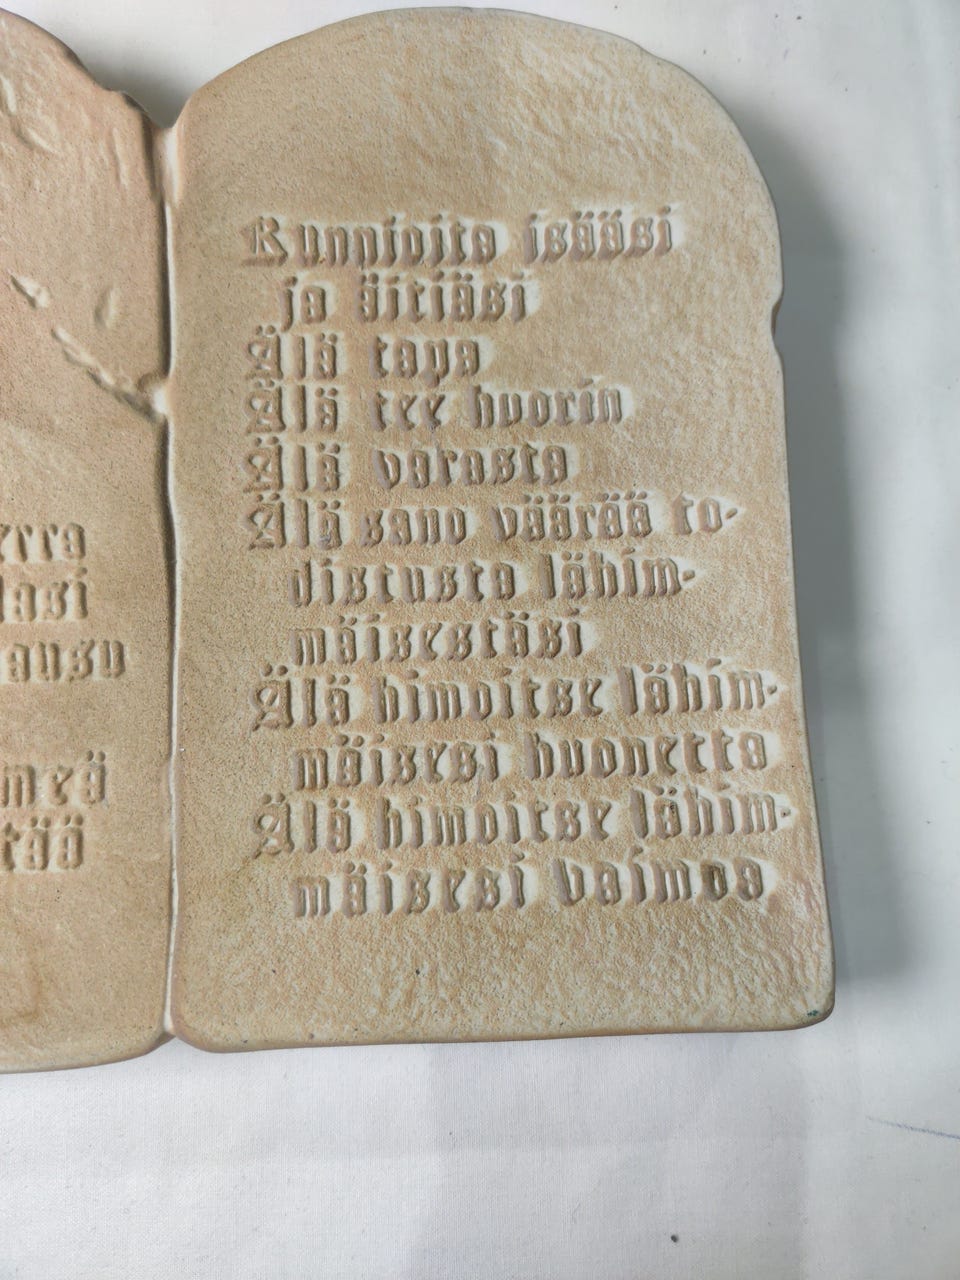 erra
lasi
ausu
meä
tää
Kunnioita isääsi
ja äitiäsi
Älä tapa
Älä tee huorin
Älä varasta
Älä sano väärää to-
distusta lähim-
mäisestäsi
Älä himoitse lähim-
mäisesi huonetta
Älä himoitse lähim-
mäisesi vaimoa